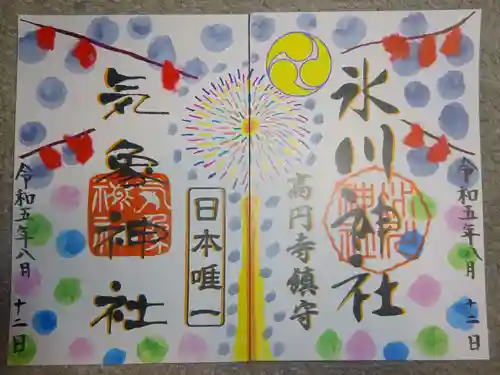 令和五年八月十二日
氷川神社
高円寺鎮守
日本唯一
気象神社
令和五年八月十二日